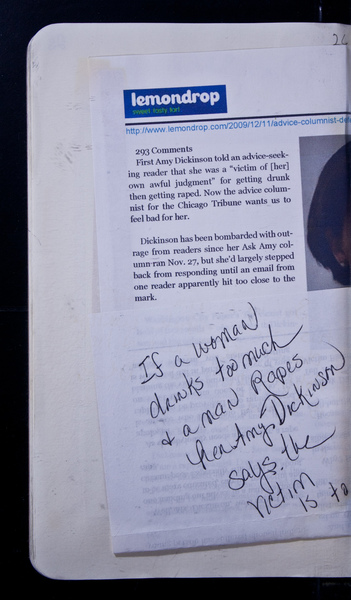 24
lemondrop
sweet. tasty. tart.
http://www.lemondrop.com/2009/12/11/advice-columnist-de
293 Comments
First Amy Dickinson told an advice-seek-
ing reader that she was a “victim of [her]
own awful judgment” for getting drunk
then getting raped. Now the advice colum-
nist for the Chicago Tribune wants us to
feel bad for her.
Dickinson has been bombarded with out-
rage from readers since her Ask Amy col-
umn ran Nov. 27, but she'd largely stepped
back from responding until an email from
one reader apparently hit too close to the
mark.
If a woman
drinks too much
& a man Rapes
her Amy Dickinson
says. the
victim
is to